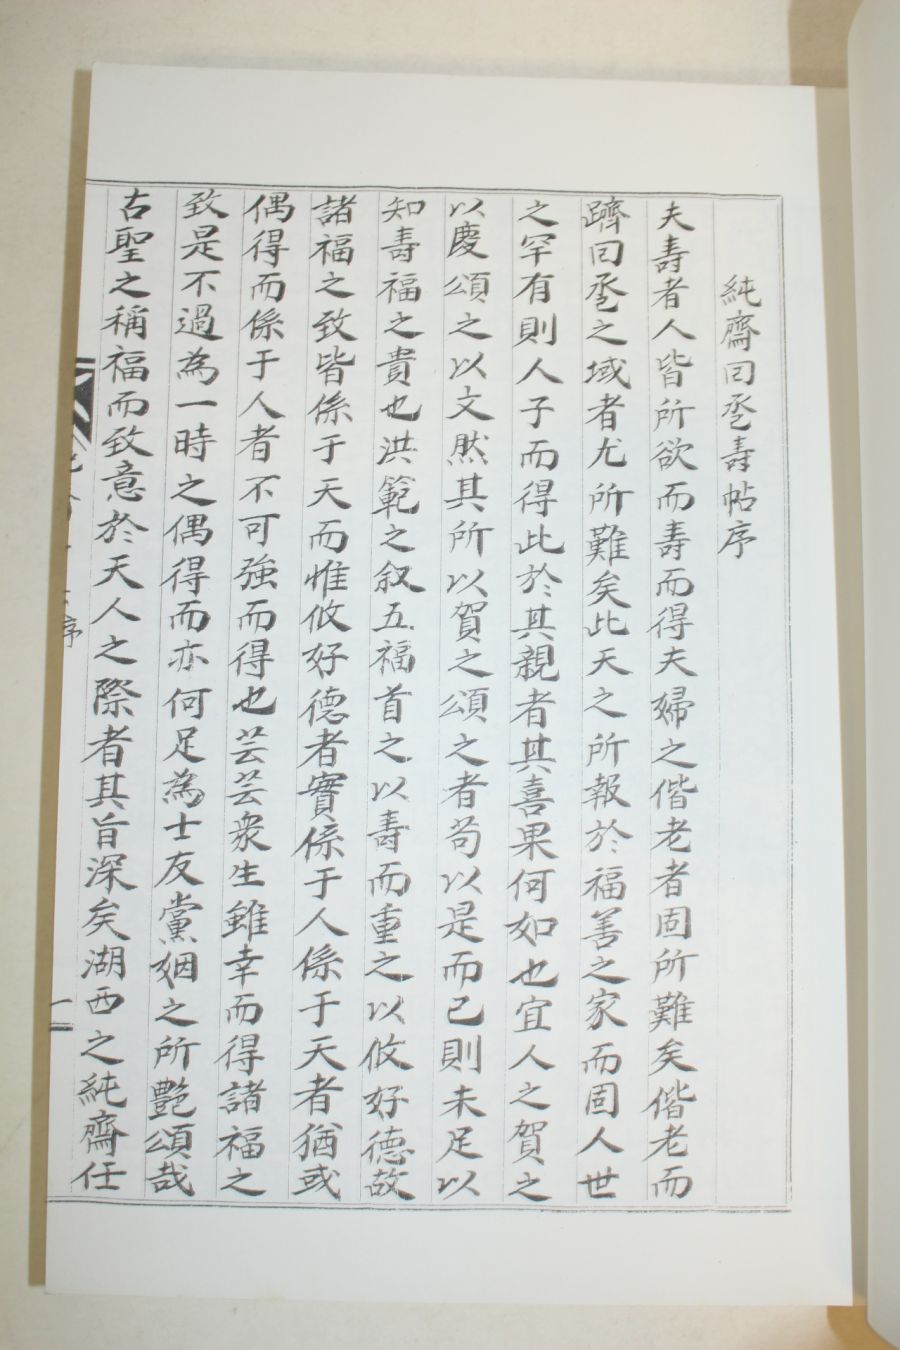 純齋回巹壽帖序
夫壽者人皆所欲而壽而得夫婦之偕老者固所難矣偕老而
躋回巹之域者尤所難矣此天之所報於福善之家而固人世
之罕有則人子而得此於其親者其喜果何如也宜人之賀之
以慶頌之以文然其所以賀之頌之者苟以是而已則未足以
知壽福之貴也洪範之叙五福首之以壽而重之以攸好德故
諸福之致皆係于天而惟攸好德者實係于人係于天者猶或
偶得而係于人者不可強而得也芸芸衆生雖幸而得諸福之
致是不過為一時之偶得而亦何足為士友黨姻之所艷頌哉
古聖之稱福而致意於天人之際者其旨深矣湖西之純齋任
序
一